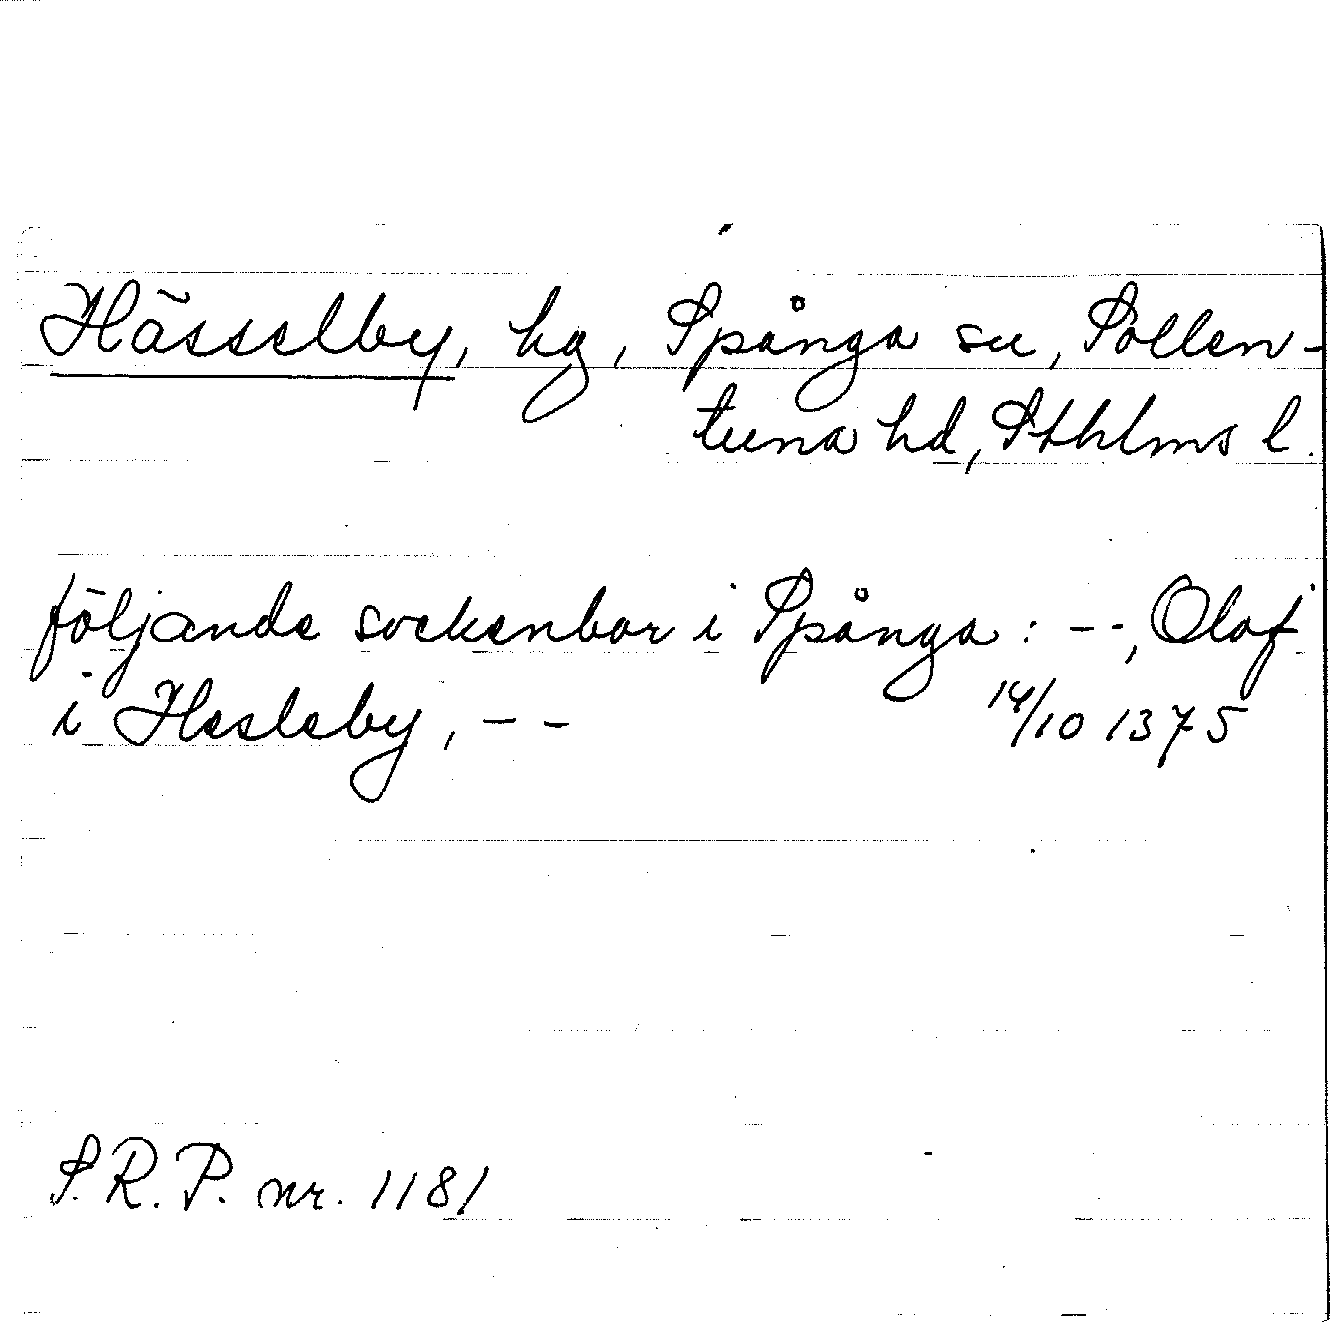 Hässelby, hg, Spånga sn, Sollen-
tuna hd, Sthlms l.
följande sockenbor i Spånga: --, Olaf
i Hesleby, --
14/10 1375
S.R.P. nr. 1181